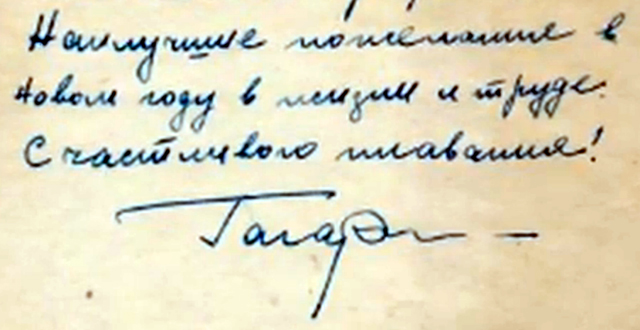 Наилучшие пожелание в
новом году в жизни и труде.
Счастливого плавания!
Гагарин